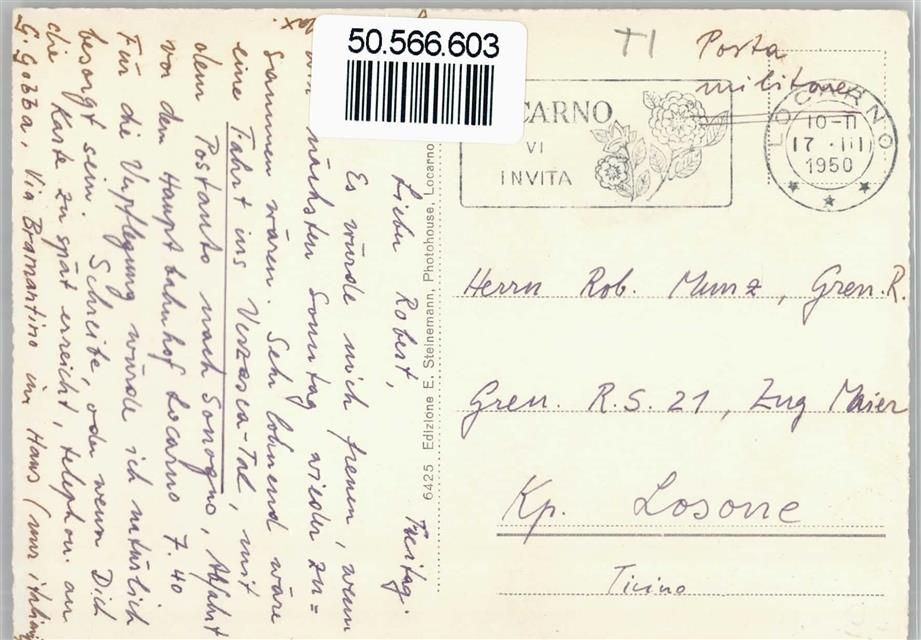 50.566.603
TI
Posta
militare
LOCARNO
10-11
17.III
1950
CARNO
VI
INVITA
Herrn Rob. Munz, Gren. R.
Gren. R.S. 21, Zug Maier
Kp. Losone
Ticino
6425 Edizione E. Steinemann, Photohouse, Locarno
Freitag.
Lieber Robert,
Es würde mich freuen, wenn
wir nächsten Sonntag wieder zu=
sammen wären. Sehr lohnend wäre
eine Fahrt ins Verzasca-Tal, mit
dem Postauto nach Sonogno, Abfahrt
vor dem Hauptbahnhof Locarno 7.40
Für die Verpflegung würde ich natürlich
besorgt sein. Schreibe, oder wenn Dich
die Karte zu spät erreicht, telephon. an
G. Gobba, Via Bramantino im Haus (nur